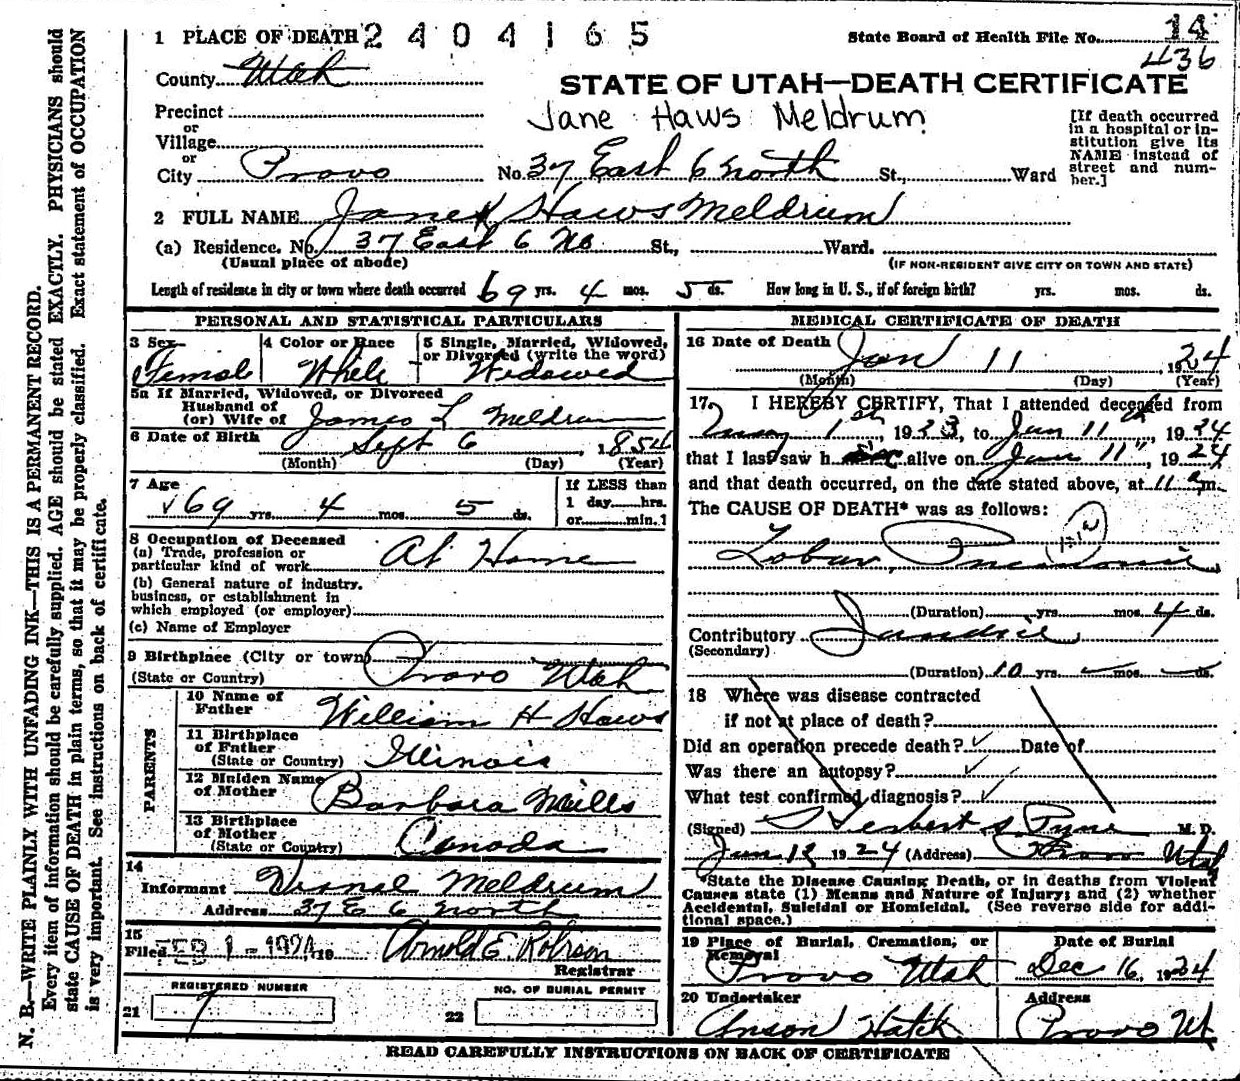 1 PLACE OF DEATH 2404165
State Board of Health File No. 14
436
County Utah
STATE OF UTAH—DEATH CERTIFICATE
Precinct
Jane Haws Meldrum
or
Village
or
City Provo No. 37 East 6 North St., Ward
[If death occurred
in a hospital or in-
stitution give its
NAME instead of
street and num-
ber.]
2 FULL NAME Jane Haws Meldrum
(a) Residence. No. 37 East 6 No St., Ward.
(Usual place of abode) (IF NON-RESIDENT GIVE CITY OR TOWN AND STATE)
Length of residence in city or town where death occurred 69 yrs. 4 mos. 5 ds. How long in U. S., if of foreign birth? yrs. mos. ds.
PERSONAL AND STATISTICAL PARTICULARS
3 Sex 4 Color or Race 5 Single, Married, Widowed,
or Divorced (write the word)
Female White Widowed
5a If Married, Widowed, or Divorced
Husband of
(or) Wife of James L Meldrum
6 Date of Birth Sept 6, 1854
(Month) (Day) (Year)
7 Age
69 yrs. 4 mos. 5 ds.
If LESS than
1 day hrs.
or min.?
8 Occupation of Deceased
(a) Trade, profession or
particular kind of work At Home
(b) General nature of industry.
business, or establishment in
which employed (or employer)
(c) Name of Employer
9 Birthplace (City or town)
(State or Country) Provo Utah
PARENTS
10 Name of
Father William H Haws
11 Birthplace
of Father
(State or Country) Illinois
12 Maiden Name
of Mother Barbara Mills
13 Birthplace
of Mother
(State or Country) Canada
14
Informant Meldrum
Address 37 E 6 North
15
Filed FEB 1 - 1924 19
Registrar
REGISTERED NUMBER
21 9
NO. OF BURIAL PERMIT
22
MEDICAL CERTIFICATE OF DEATH
16 Date of Death Jan 11, 1924
(Month) (Day) (Year)
17. I HEREBY CERTIFY, That I attended deceased from
1st, 1923, to Jan 11th, 1924
that I last saw her alive on Jan 11th, 1924
and that death occurred, on the date stated above, at 11 a.m.
The CAUSE OF DEATH* was as follows:
Lobar Pneumonia
(Duration) yrs. mos. 4 ds.
Contributory
(Secondary)
(Duration) 10 yrs. mos. ds.
18 Where was disease contracted
if not at place of death?
Did an operation precede death? Date of
Was there an autopsy?
What test confirmed diagnosis?
(Signed) Herbert S. Pyne M. D.
Jan 12 1924 (Address) Provo Utah
*State the Disease Causing Death, or in deaths from Violent
Causes state (1) Means and Nature of Injury; and (2) whether
Accidental, Suicidal or Homicidal. (See reverse side for addi-
tional space.)
19 Place of Burial, Cremation, or Removal Date of Burial
Provo Utah Dec 16, 1924
20 Undertaker Address
Anson Hatch Provo Ut
READ CAREFULLY INSTRUCTIONS ON BACK OF CERTIFICATE
N. B.—WRITE PLAINLY WITH UNFADING INK—THIS IS A PERMANENT RECORD.
Every item of information should be carefully supplied. AGE should be stated EXACTLY. PHYSICIANS should
state CAUSE OF DEATH in plain terms, so that it may be properly classified. Exact statement of OCCUPATION
is very important. See instructions on back of certificate.